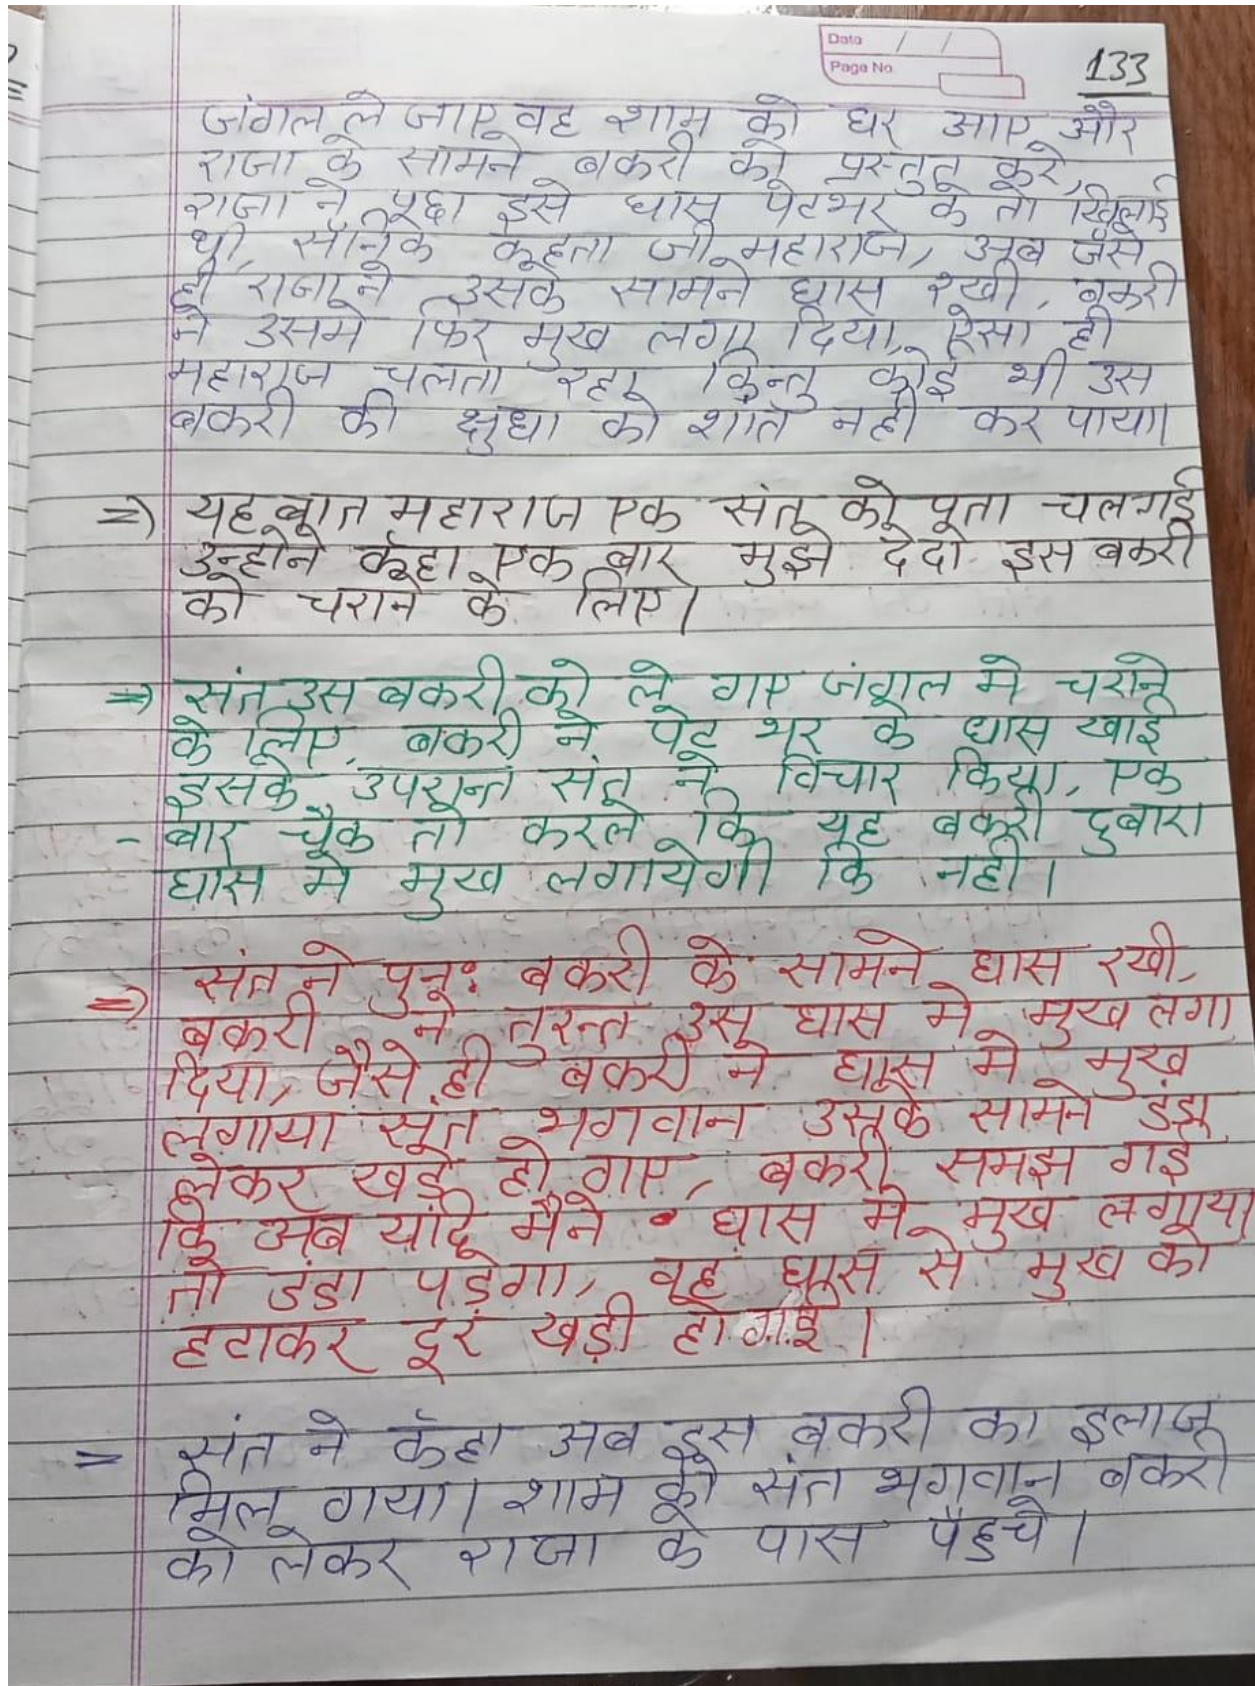 Data / /
Page No
133
जंगल ले जाए वह शाम को घर आए और
राजा के सामने बकरी को प्रस्तुत करे,
राजा ने पूछा इसे घास पेटभर के तो खिलाई
थी, सैनिक कहता जी महाराज, अब जैसे
ही राजा ने उसके सामने घास रखी, बकरी
ने उसमे फिर मुख लगा दिया, ऐसा ही
महाराज चलता रहा किन्तु कोई भी उस
बकरी की क्षुधा को शांत नही कर पाया।
⇒ यह बात महाराज एक संत को पता चल गई
उन्होने कहा एक बार मुझे देदो इस बकरी
को चराने के लिए।
⇒ संत उस बकरी को ले गए जंगल मे चराने
के लिए, बकरी ने पेट भर के घास खाई
इसके उपरान्त संत ने विचार किया, एक
- बार चैक तो करले कि यह बकरी दुबारा
घास मे मुख लगायेगी कि नही।
संत ने पुनः बकरी के सामने घास रखी,
⇒ बकरी ने तुरन्त उस घास मे मुख लगा
दिया, जैसे ही बकरी ने घास मे मुख
लगाया संत भगवान उसके सामने डंडा
लेकर खड़े हो गए, बकरी समझ गई
कि अब यदि मैने घास मे मुख लगाया
तो डंडा पड़ेगा, वह घास से मुख को
हटाकर दूर खड़ी हो गई।
= संत ने कहा अब इस बकरी का इलाज
मिल गया। शाम को संत भगवान बकरी
को लेकर राजा के पास पहुंचे।